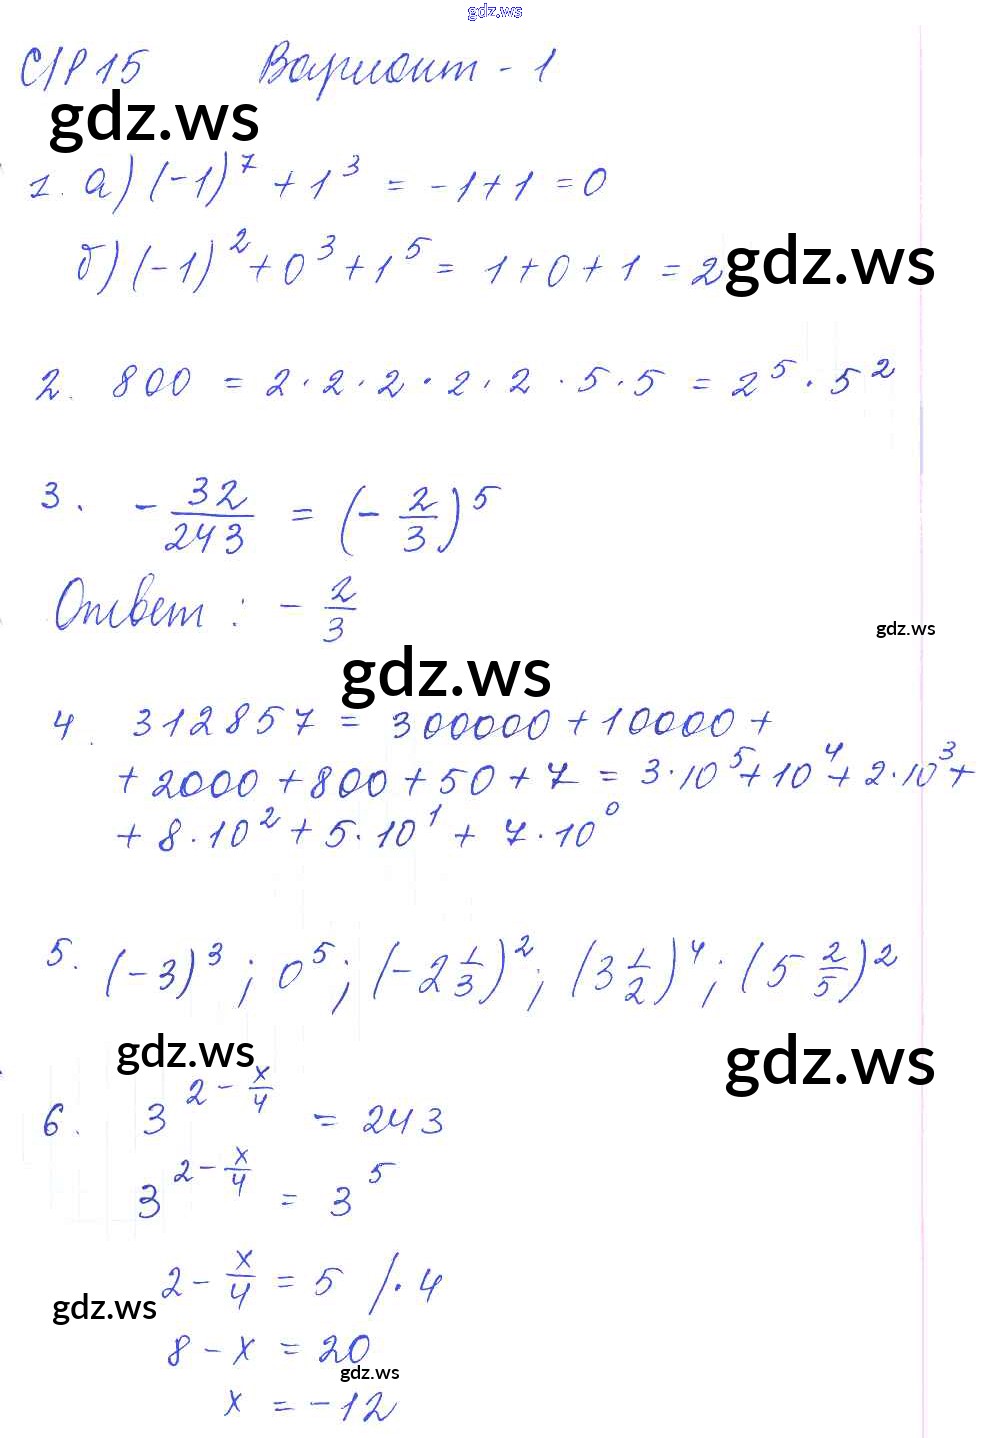 gdz.ws
С/Р 15 Вариант - 1
gdz.ws
1. а) (-1)^7 + 1^3 = -1+1 = 0
б) (-1)^2 + 0^3 + 1^5 = 1+0+1 = 2
gdz.ws
2. 800 = 2·2·2·2·2·5·5 = 2^5 · 5^2
3. - 32/243 = (- 2/3)^5
Ответ: - 2/3
gdz.ws
gdz.ws
4. 312857 = 300000 + 10000 +
+ 2000 + 800 + 50 + 7 = 3·10^5 + 10^4 + 2·10^3 +
+ 8·10^2 + 5·10^1 + 7·10^0
5. (-3)^3; 0^5; (-2 1/3)^2; (3 1/2)^4; (5 2/5)^2
gdz.ws
gdz.ws
6. 3^(2 - x/4) = 243
3^(2 - x/4) = 3^5
2 - x/4 = 5 /·4
gdz.ws
8 - x = 20
gdz.ws
x = -12